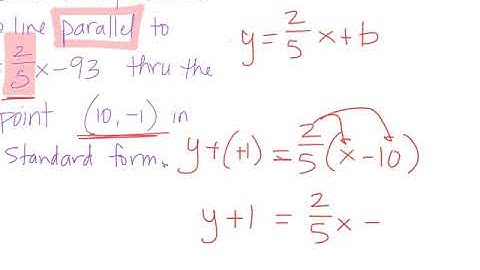 line parallel to
2/5 x - 93 thru the
point (10, -1) in
Standard form.
y = 2/5 x + b
y + (+1) = 2/5 (x - 10)
y + 1 = 2/5 x -